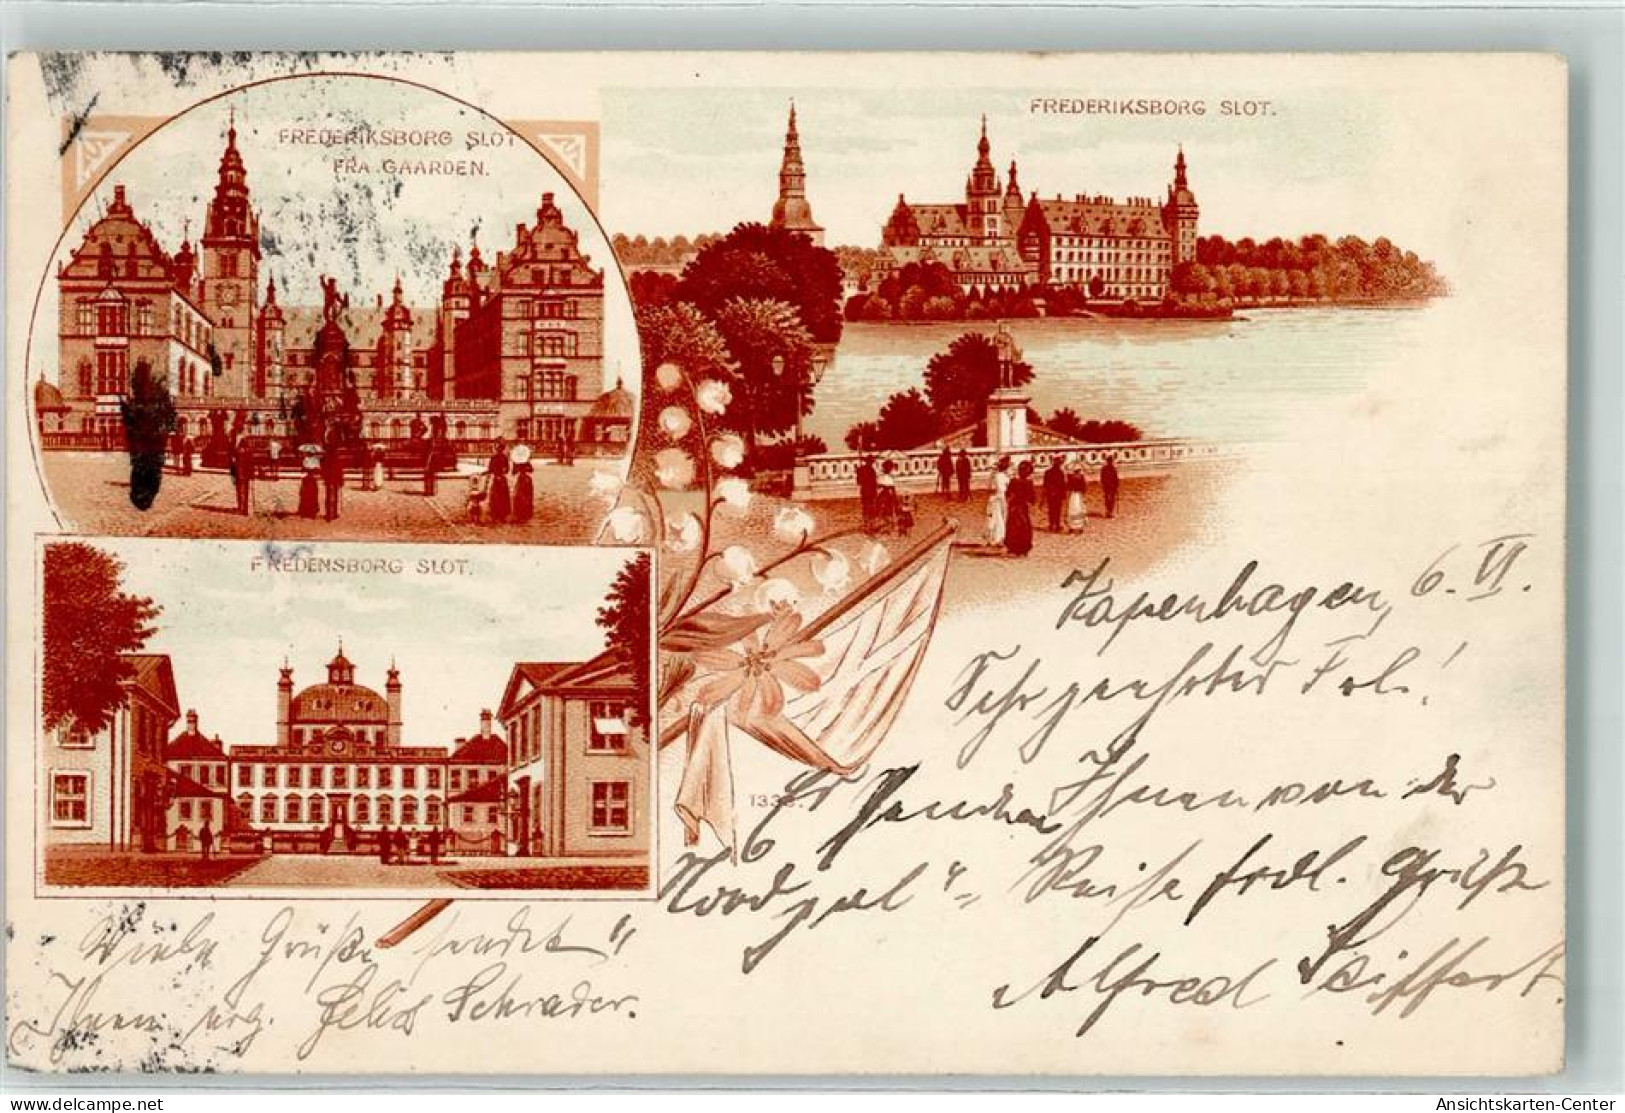 FREDERIKSBORG SLOT
FRA GAARDEN.
FREDERIKSBORG SLOT.
FREDENSBORG SLOT.
Kopenhagen, 6. VI.
Sehr geehrtes Frl.!
Es senden Ihnen von der
"Nordpol"= Reise frdl. Grüße
Alfred Seiffert.
Viele Grüße sendet
Ihnen erg. Felix Schrader.
delcampe.net
Ansichtskarten-Center